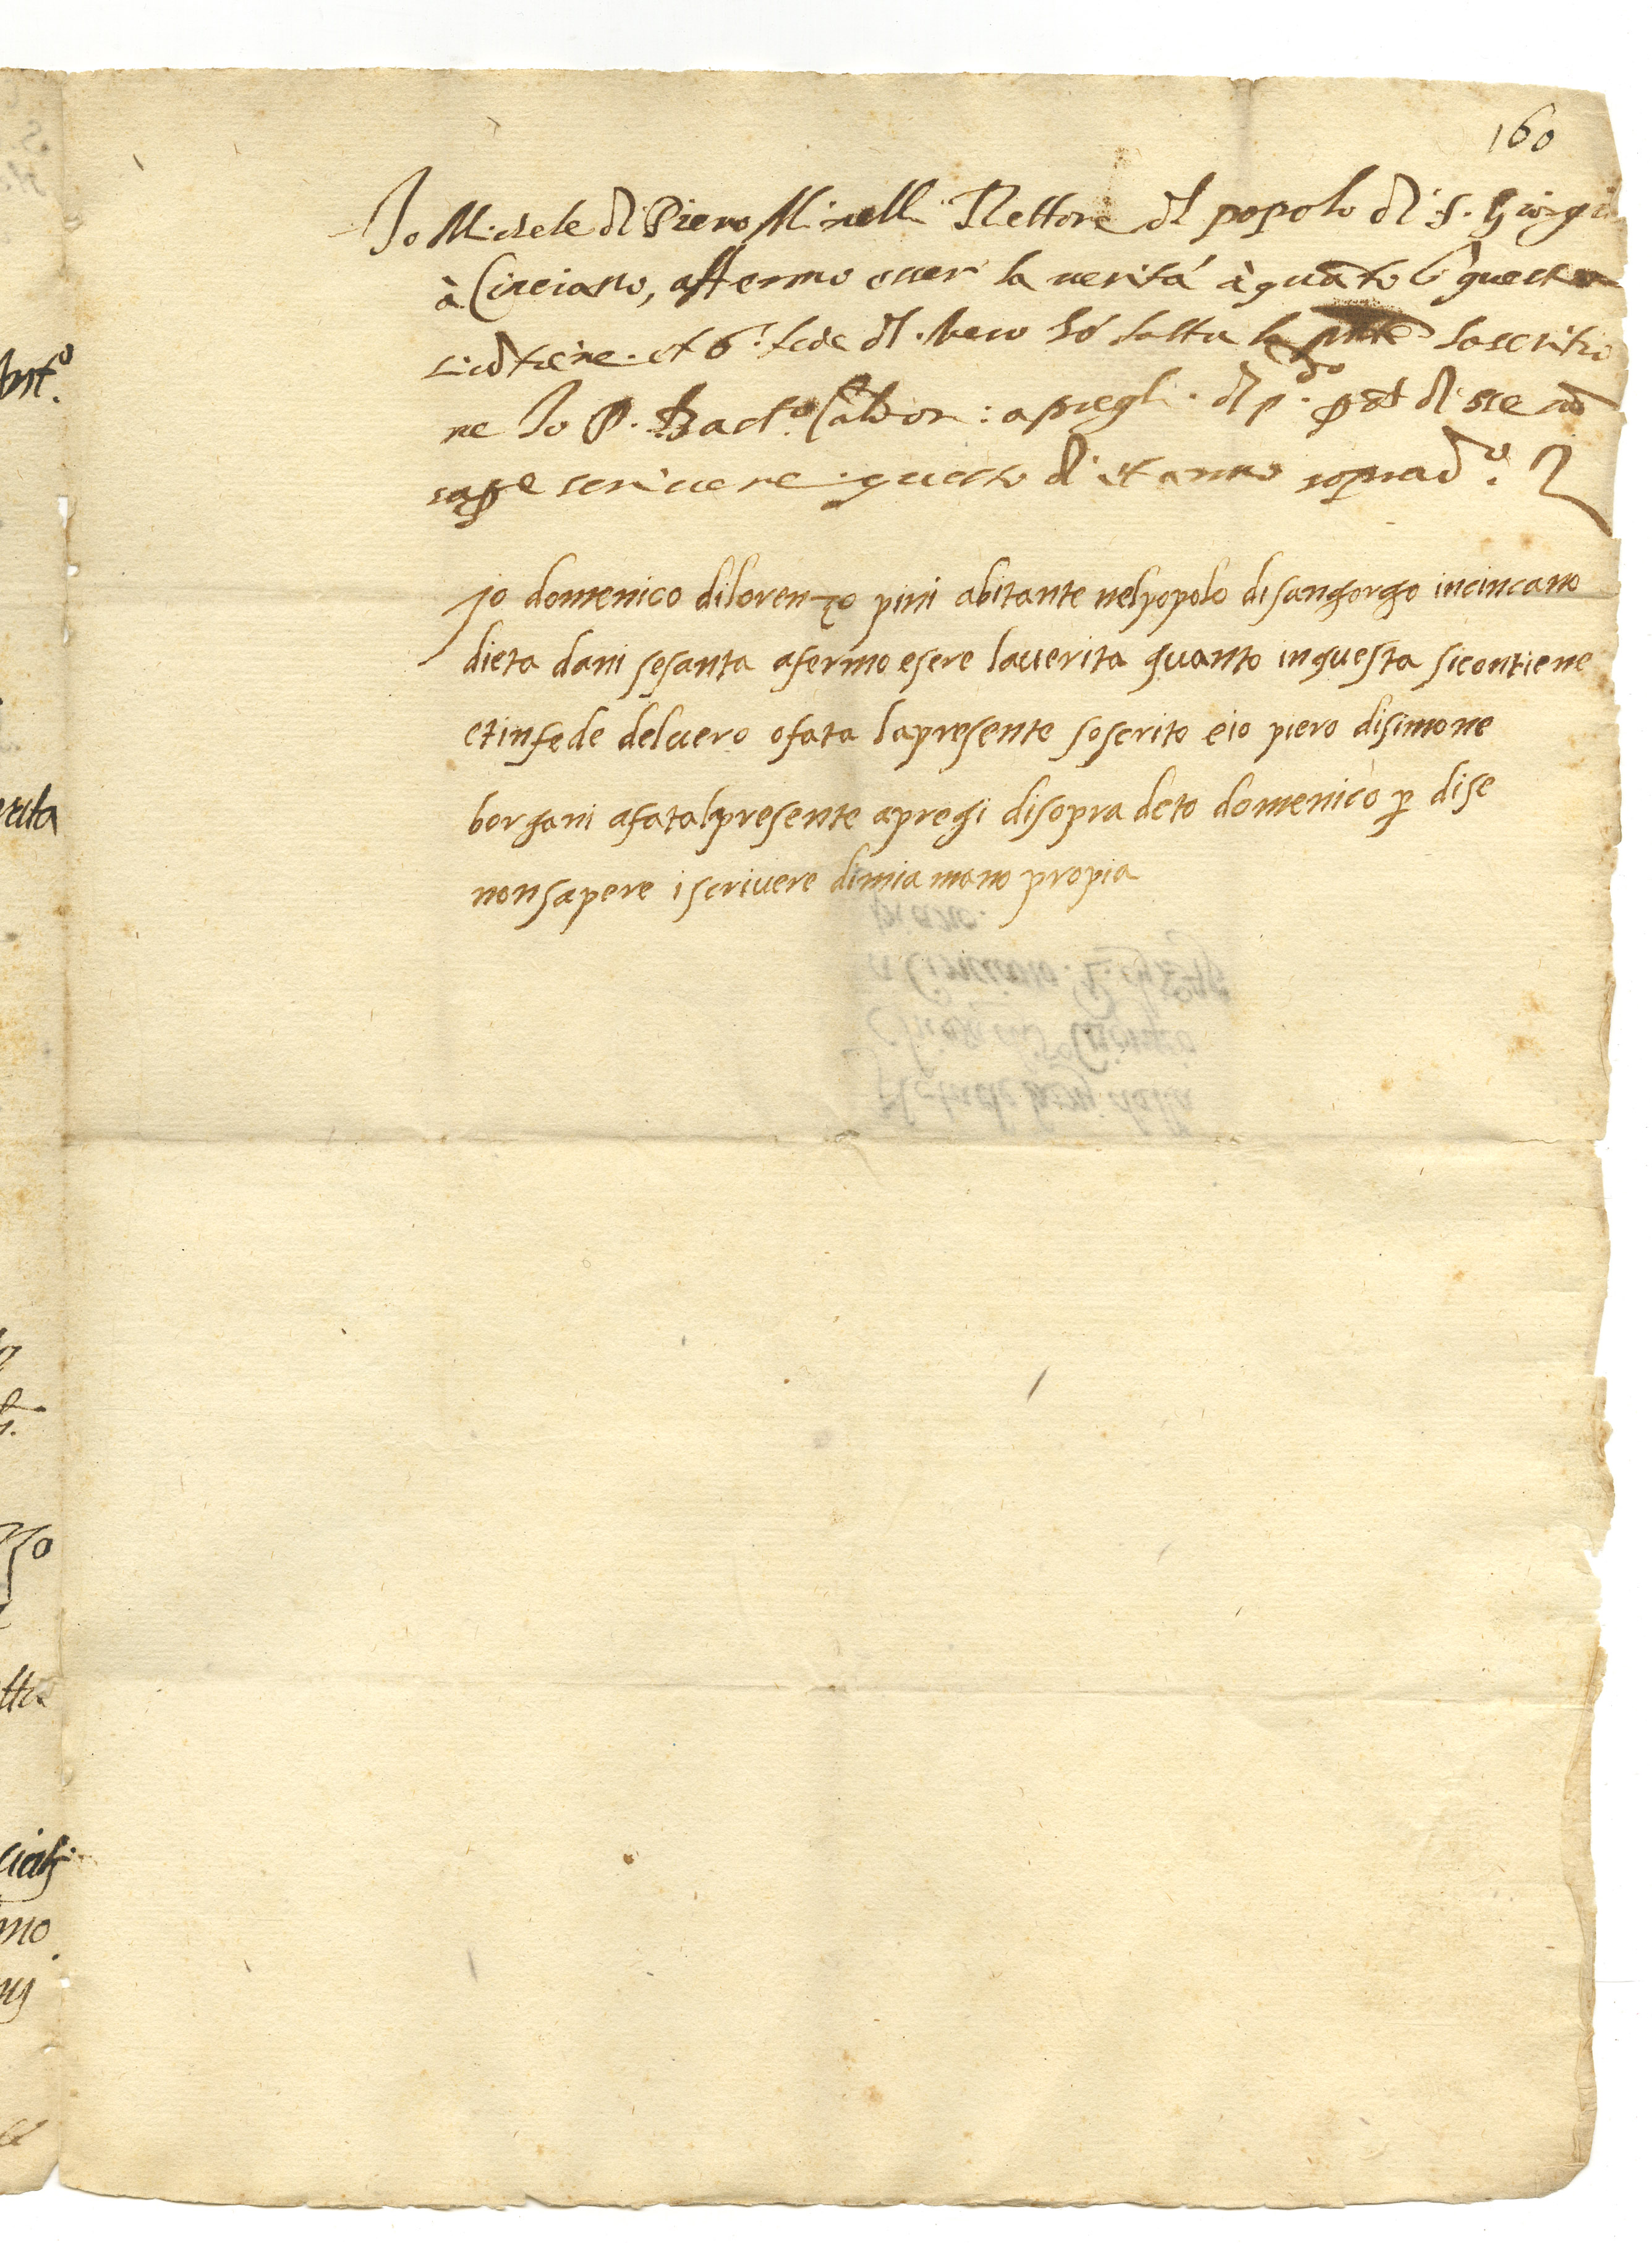 160
Io Michele di Piero Minelli Rettore dl popolo di S. Giorgio
à Cinciano, affermo esser la verità à quãto ĩ questa
si cõtiene. et ĩ fede dl. vero hó fatta la pñte soscritio
ne Io P. Bact.º : a pregli. di p.º disse nõ
sape scrivere questo di et anno soprad.º
Jo domenico dilorenzo pini abitante nelpopolo disangorgo incincano
dieta dani sesanta afermo esere laverita quanto inquesta sicontiene
etinfede delvero ofata lapresente soscrito eio piero disimone
borgani afatalpresente apregi disopra deto domenico p dise
nonsapere iscrivere dimia mano propia